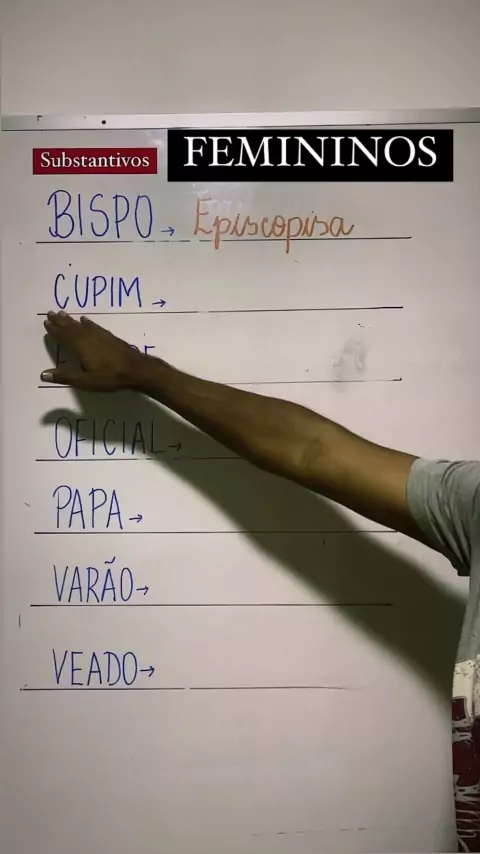 Substantivos FEMININOS
BISPO → Episcopisa
CUPIM →
OFICIAL →
PAPA →
VARÃO →
VEADO →